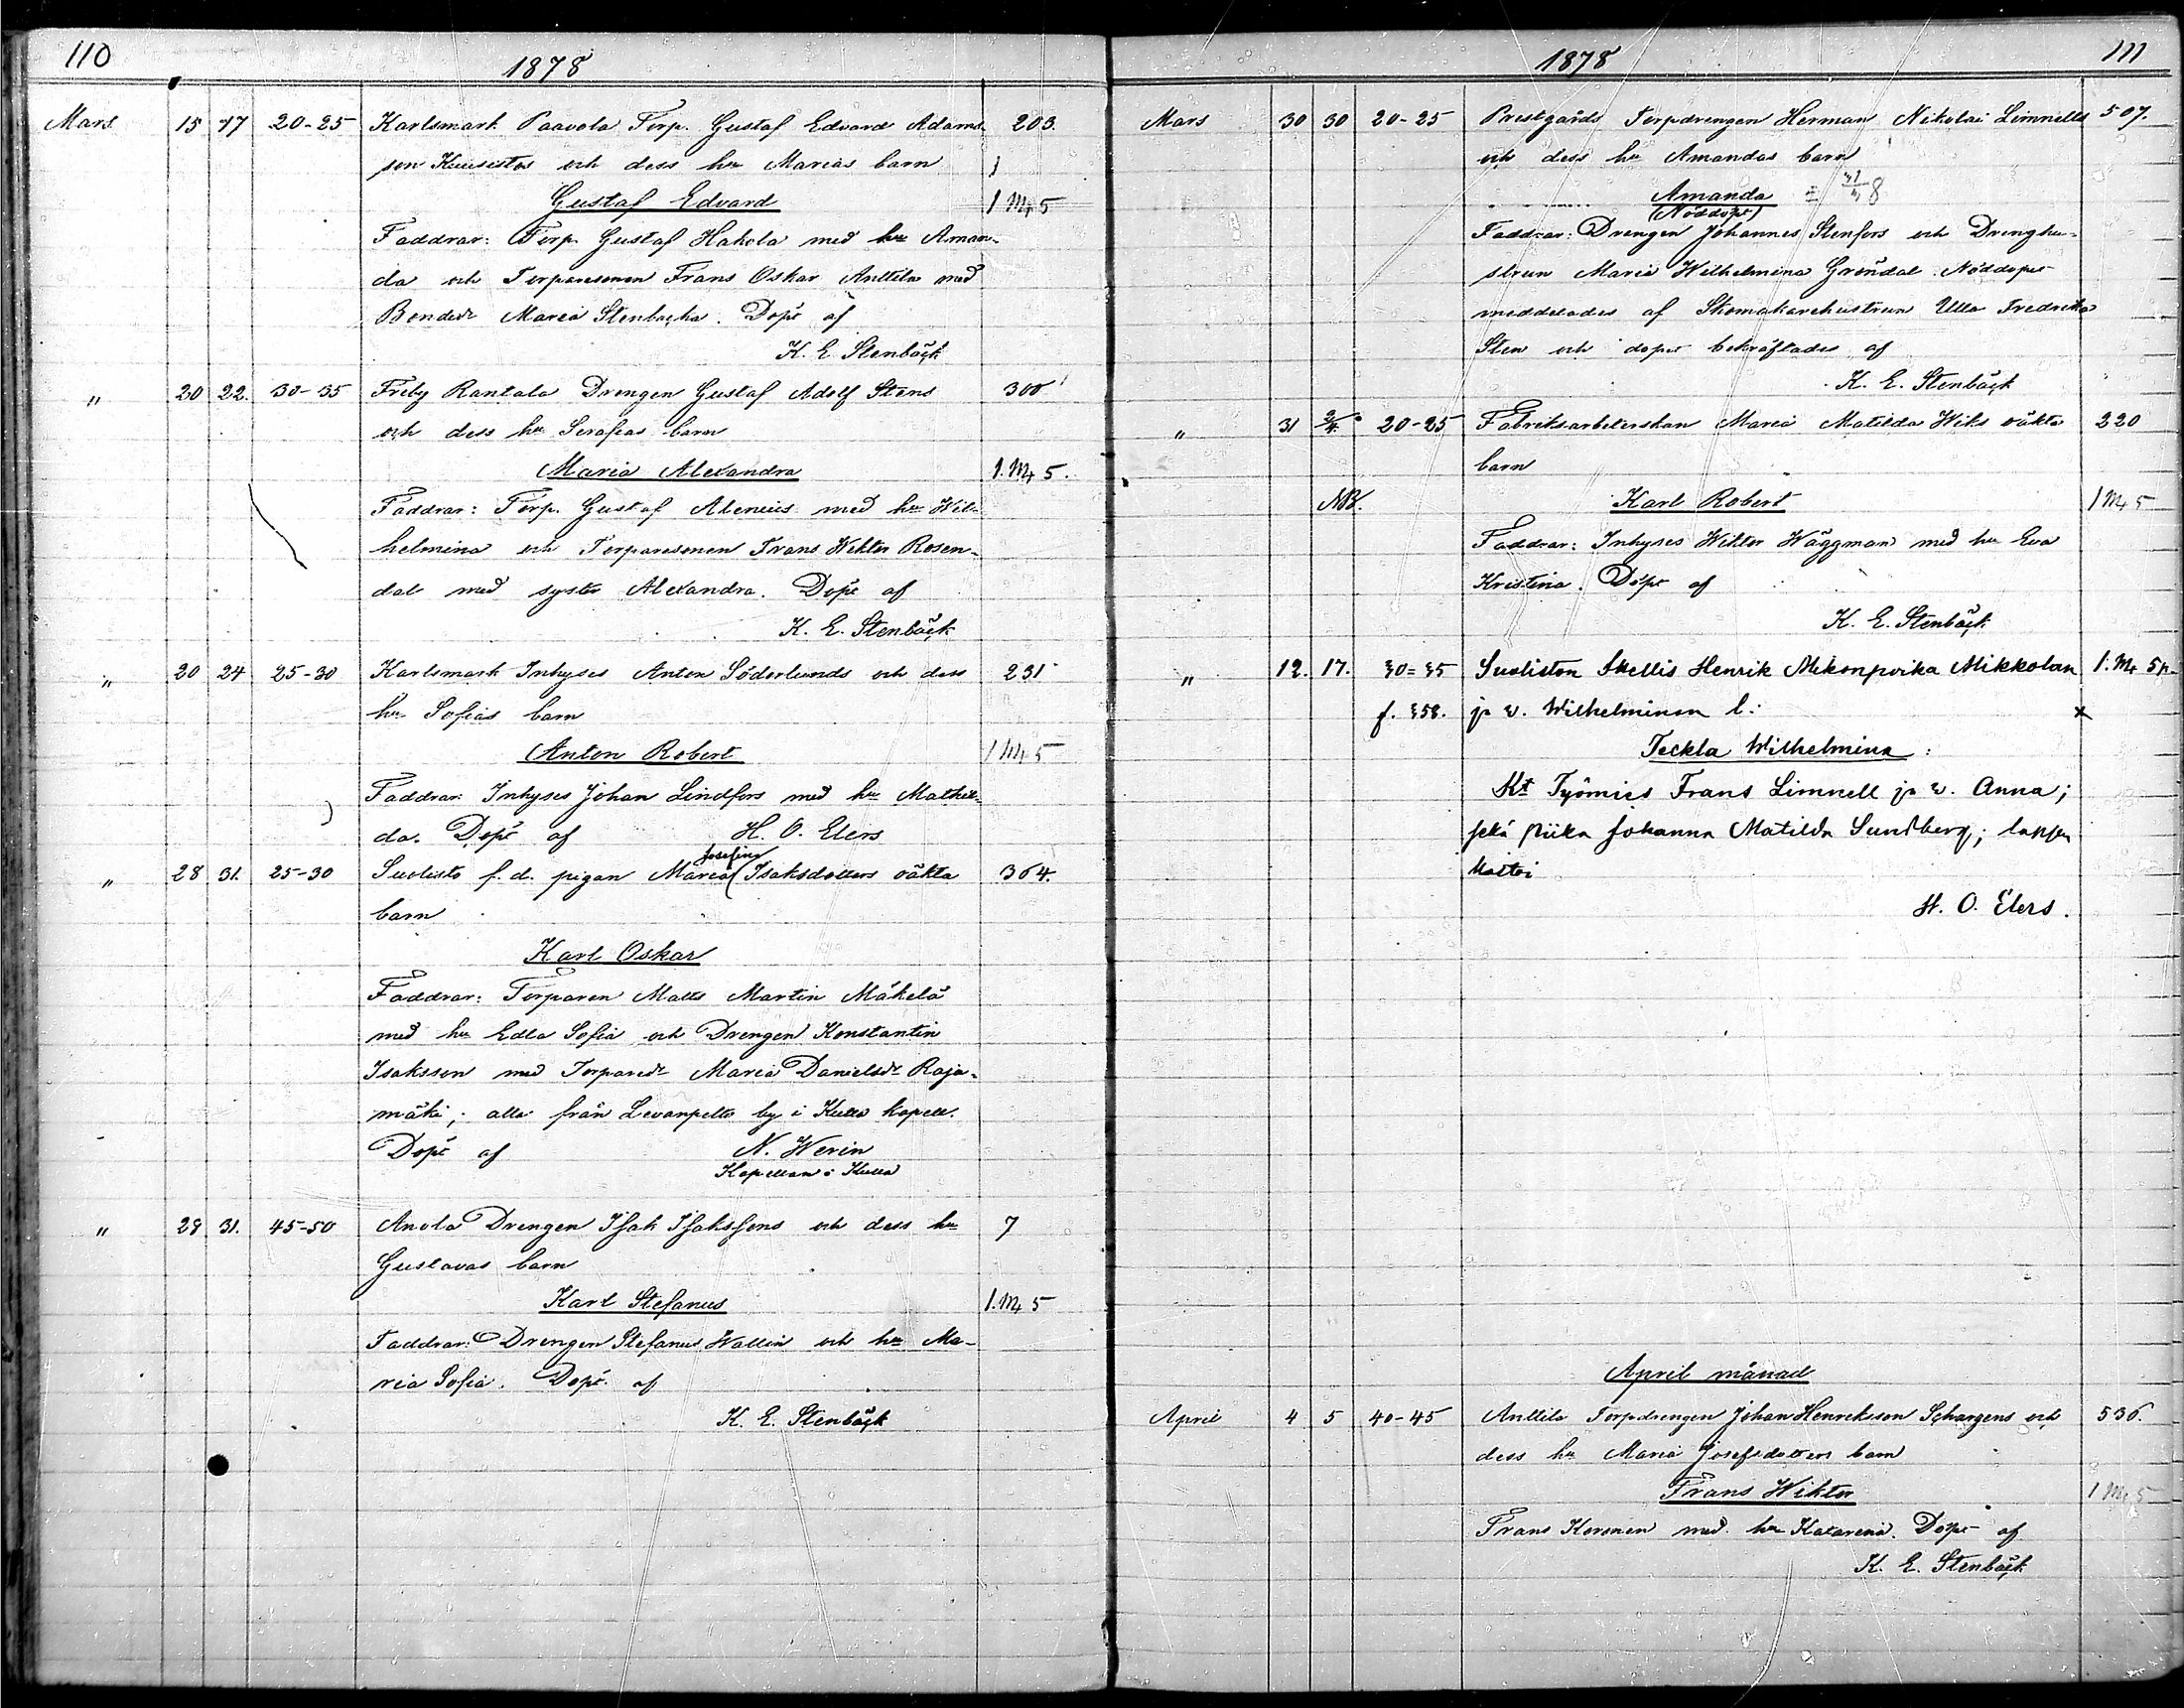 110
1878
Mars 15 17 20-25 Karlsmark Paavola Torp. Gustaf Edvard Adams- 203.
son Kuusistos och dess hu Marias barn
Gustaf Edvard 1 Mk 5
Faddrar: Torp. Gustaf Hakola med hu Aman-
da och Torparesonen Frans Oskar Anttila med
Bondedr Maria Stenbacka. Döpt af
K. E. Stenbäck
" 20 22. 30-35 Friby Rantala Drengen Gustaf Adolf Stens 300
och dess hu Serafias barn
Maria Alexandra 1. Mk 5.
Faddrar: Torp. Gustaf Alenius med hu Wil-
helmina och Torparesonen Frans Wiktor Rosen-
dal med syster Alexandra. Döpt af
K. E. Stenbäck
" 20 24 25-30 Karlsmark Inhyses Anton Söderlunds och dess 231
hu Sofias barn
Anton Robert 1 Mk 5
Faddrar: Inhyses Johan Lindfors med hu Mathil-
da. Döpt af H. O. Elers
Josefina
" 28 31. 25-30 Suolisto f. d. pigan Maria Isaksdotters oäkta 364.
barn
Karl Oskar
Faddrar: Torparen Matts Martin Mäkelä
med hu Edla Sofia och Drengen Konstantin
Isaksson med Torparedr Maria Danielsdr Raja-
mäki; alla från Levanpelto by i Kulla kapell.
Döpt af N. Werin
Kapellan i Kulla
" 29 31. 45-50 Anola Drengen Isak Isakssons och dess hu 7
Gustavas barn
Karl Stefanus 1. Mk 5
Faddrar: Drengen Stefanus Wallin och hu Ma-
ria Sofia. Döpt af
K. E. Stenbäck
1878
111
Mars 30 30 20-25 Prestgårds Torpdrengen Herman Nikolai Limnells 507.
och dess hu Amandas barn
Amanda
(Nöddöpt)
Faddrar: Drengen Johannes Stenfors och Drenghu-
strun Maria Wilhelmina Gröndal. Nöddopet
meddelades af Skomakarehustrun Ulla Fredrika
Sten och dopet bekräftades af
K. E. Stenbäck
" 31 2/4. 20-25 Fabriksarbeterskan Maria Matilda Wiks oäkta 220
barn
NB. Karl Robert 1 Mk 5
Faddrar: Inhyses Wiktor Wäggman med hu Eva
Kristina. Döpt af
K. E. Stenbäck
" 12. 17. 30=35 Suoliston Skellis Henrik Mikonpoika Mikkolan 1. Mk 5 p.
f. 358. ja v. Wilhelminan l: x
Teckla Wilhelmina:
Kt Työmies Frans Limnell ja v. Anna;
sekä piika Johanna Matilda Sundberg; lapsen
kastoi
H. O. Elers.
April månad
April 4 5 40-45 Anttila Torpdrengen Johan Henriksson Schargens och 536.
dess hu Maria Josefsdotters barn
Frans Wiktor 1 Mk 5
Frans Koronen med hu Katarina. Döpt af
K. E. Stenbäck